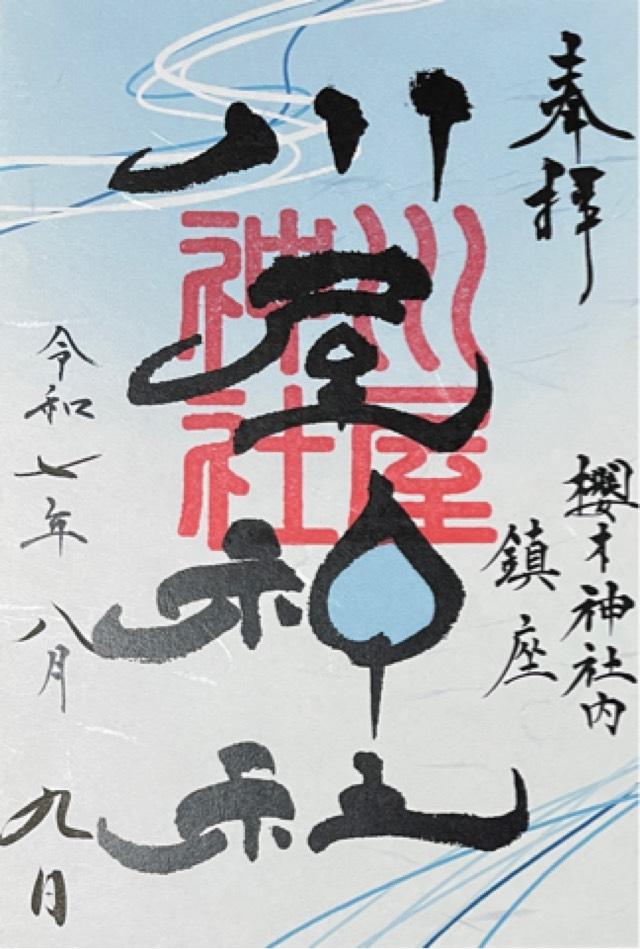 奉拝
櫻木神社内
鎮座
川屋神社
川屋
神社
令和七年八月九日